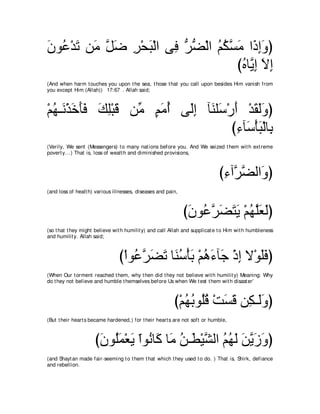 (وَإِذَا مَسَّكُمُ الْضُّرُّ فِى الْبَحْرِ ضَلَّ مَن تَدْعُونَ
إِلاَ إِيَّاهُ)
(And when harm touches you upon the sea, those that you call upon besides Him vanish from
you except Him (Allah)) 17:67 . Allah said;
(وَلَقَدْ أَرْسَلْنَآ إِلَى أُمَمٍ مِّن قَبْلِكَ فَأَخَذْنَـهُمْ
بِالْبَأْسَآءِ)
(Verily, We sent (Messengers) to many nations before you. And We seized them with extreme
poverty...) That is, loss of wealth and diminished provisions,
(وَالضَّرَّآءِ)
(and loss of health) various illnesses, diseases and pain,
(لَعَلَّهُمْ يَتَضَرَّعُونَ)
(so that they might believe with humility) and call Allah and supplicate to Him with humbleness
and humility. Allah said;
(فَلَوْلا إِذْ جَآءَهُمْ بَأْسُنَا تَضَرَّعُواْ)
(When Our torment reached them, why then did they not believe with humility) Meaning: Why
do they not believe and humble themselves before Us when We test them with disaster'
(وَلَـكِن قَسَتْ قُلُوبُهُمْ)
(But their hearts became hardened,) for their hearts are not soft or humble,
(وَزَيَّنَ لَهُمُ الشَّيْطَـنُ مَا كَانُواْ يَعْمَلُونَ)
(and Shaytan made fair-seeming to them that which they used to do. ) That is, Shirk, defiance
and rebellion.